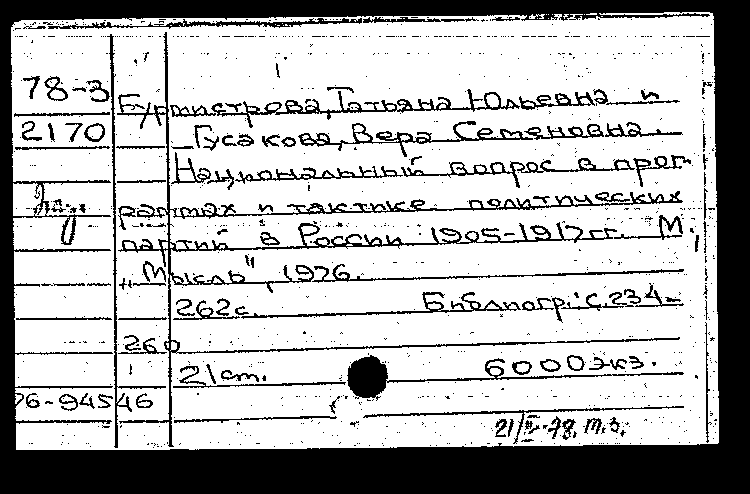 78-3
2170
Бурмистрова, Татьяна Юльевна и
Гусакова, Вера Семеновна.
Национальный вопрос в прог-
раммах и тактике политических
партий в России 1905-1917гг. М.,
"Мысль", 1976.
262с. Библиогр.: с.234-
260
21см. 6000экз.
76-94546
21/ -78. т.з.